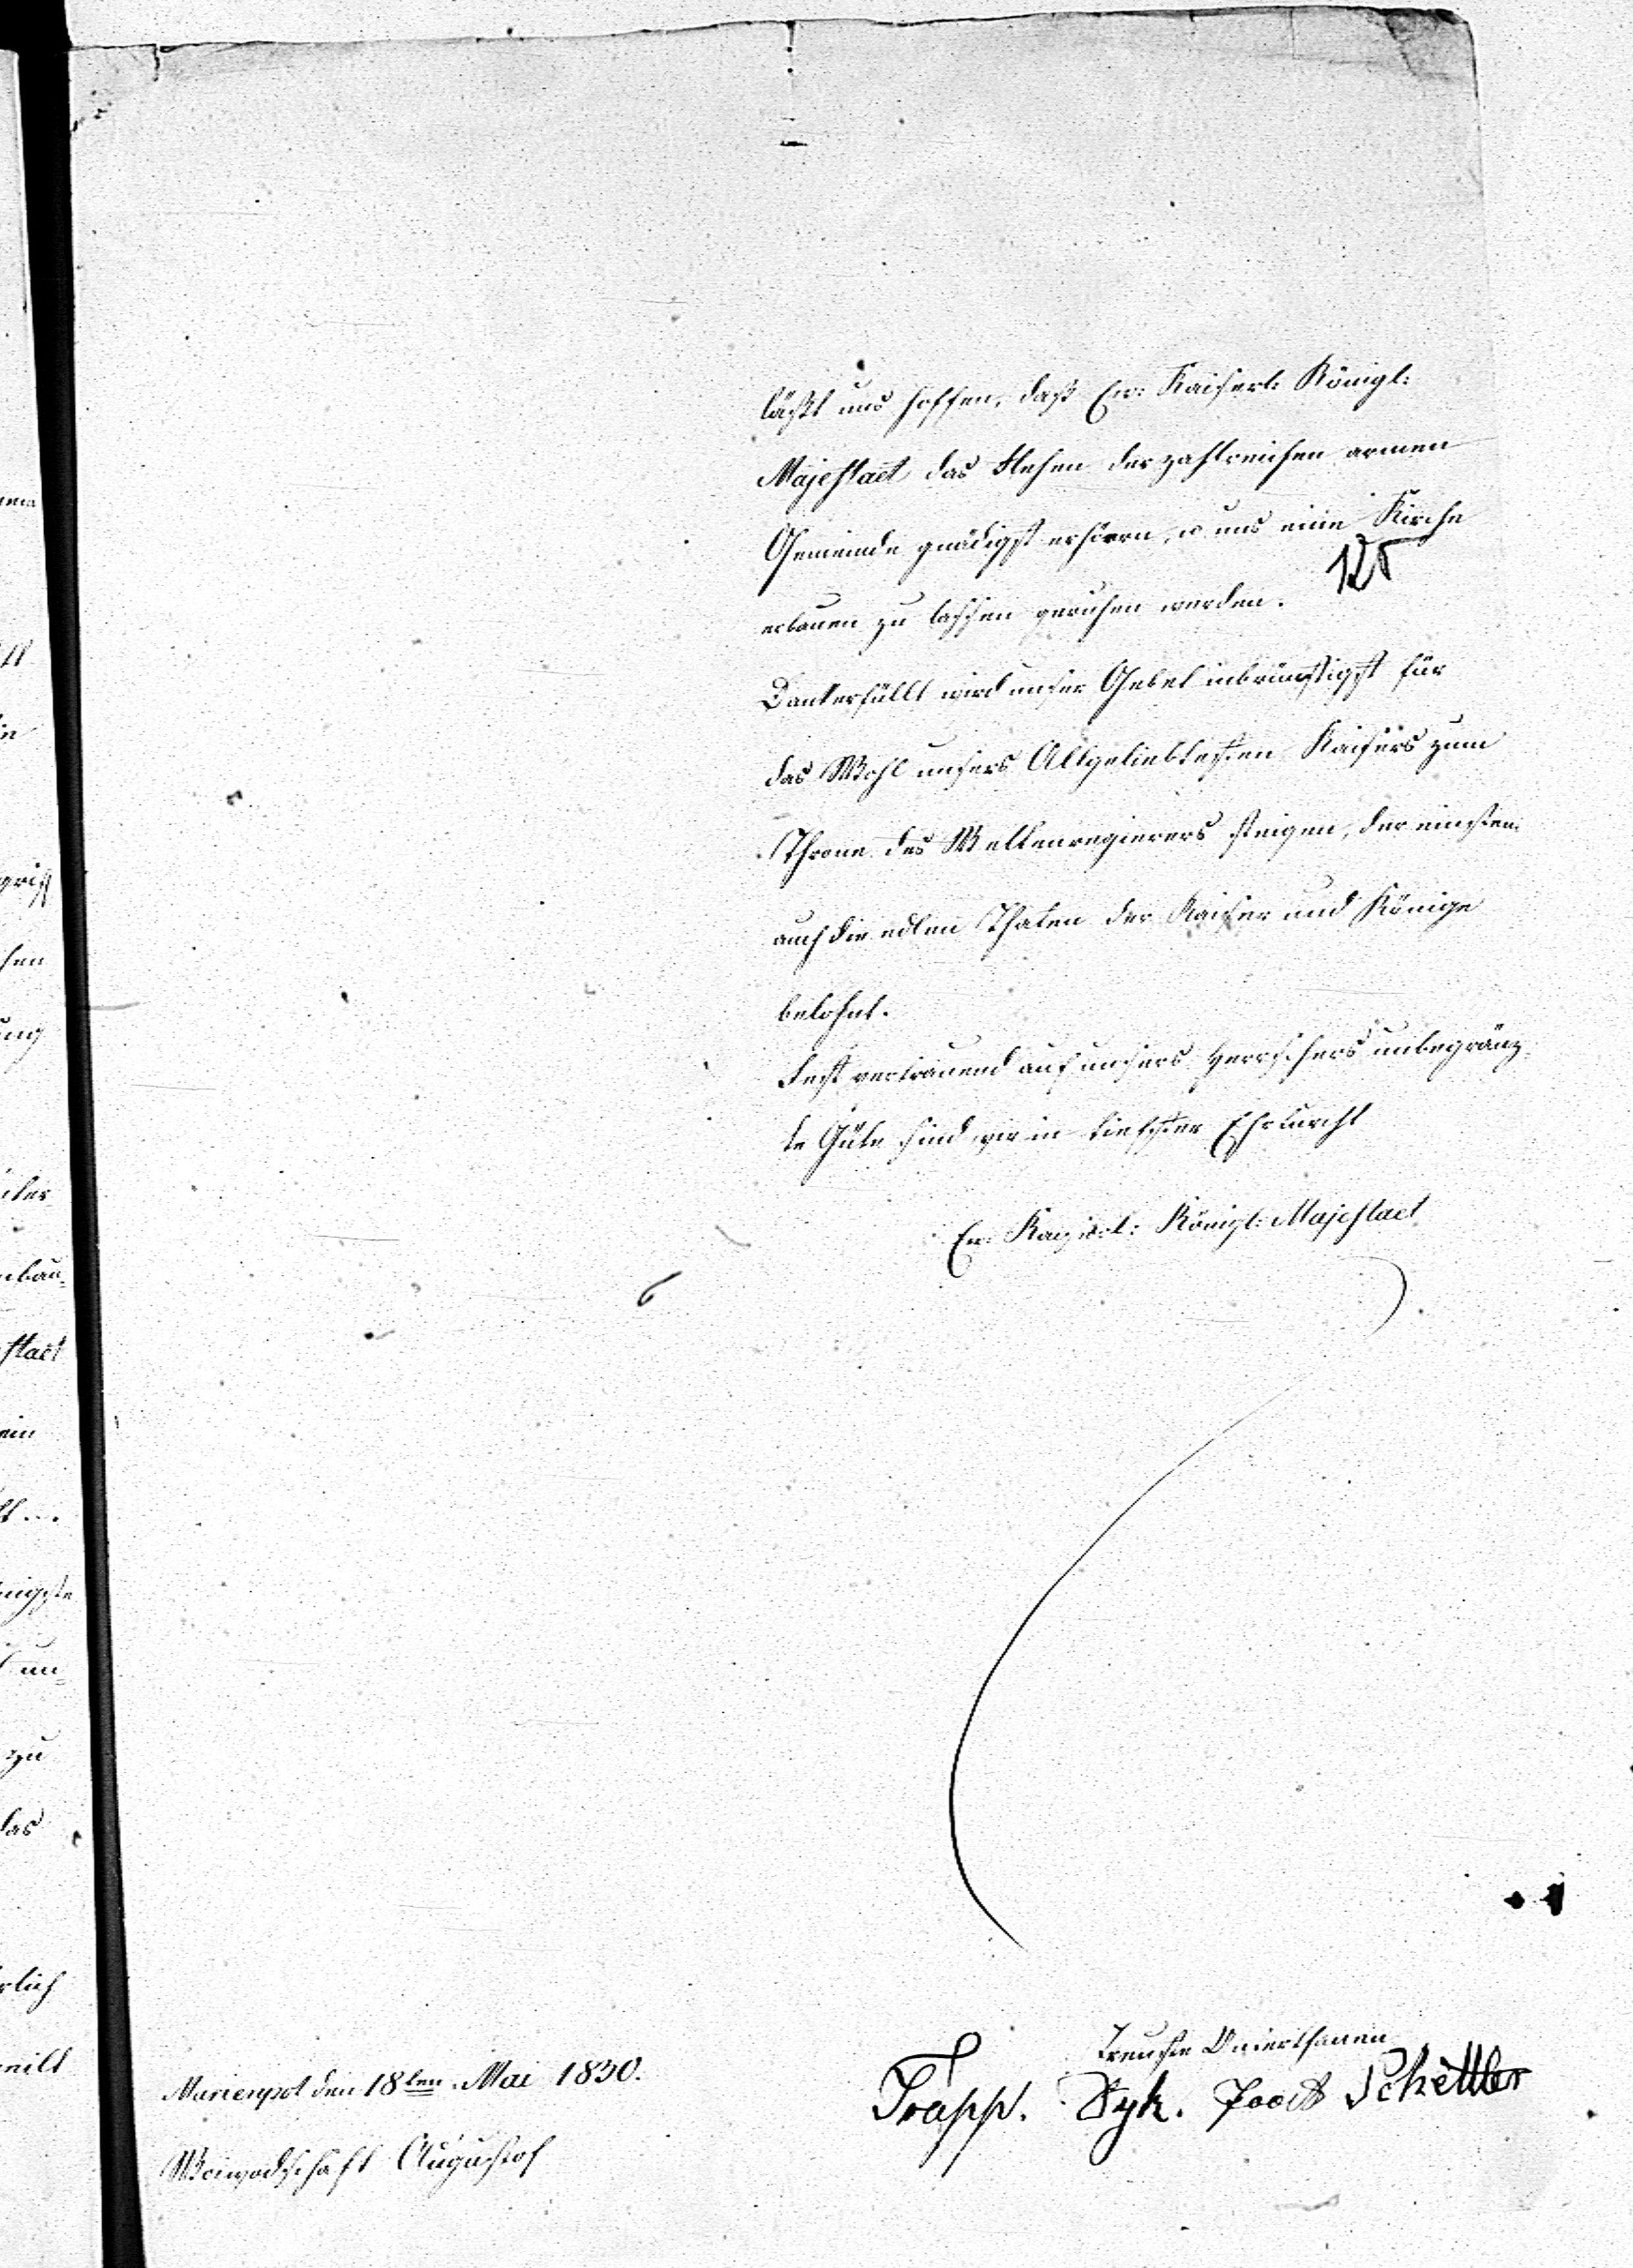 läßt uns hoffen, daß Ew: Kaiserl: Königl:
Majestaet das Flehen der zahlreichen armen
Gemeinde gnädigst erhören, u uns eine Kirche
125
erbauen zu lassen geruhen werden.
Dankerfüllt wird unser Gebet inbrünstigst für
das Wohl unsers Allgeliebtesten Kaisers zum
Throne des Weltenregierers steigen, der einstens
auch die edlen Thaten der Kaiser und Könige
belohnt.
Fest vertrauend auf unsers Herrschers unbegränz-
te Güte sind wir in tiefster Ehrfurcht
Ew. Kaiserl: Königl: Majestaet
Treuste Unterthanen
Trapp. Dyk. Schettler
Marienpol den 18ten Mai 1830.
Woiwodschaft Augustof
ung
ebau-
staet
ein
nigste
un-
zu
das
rlich